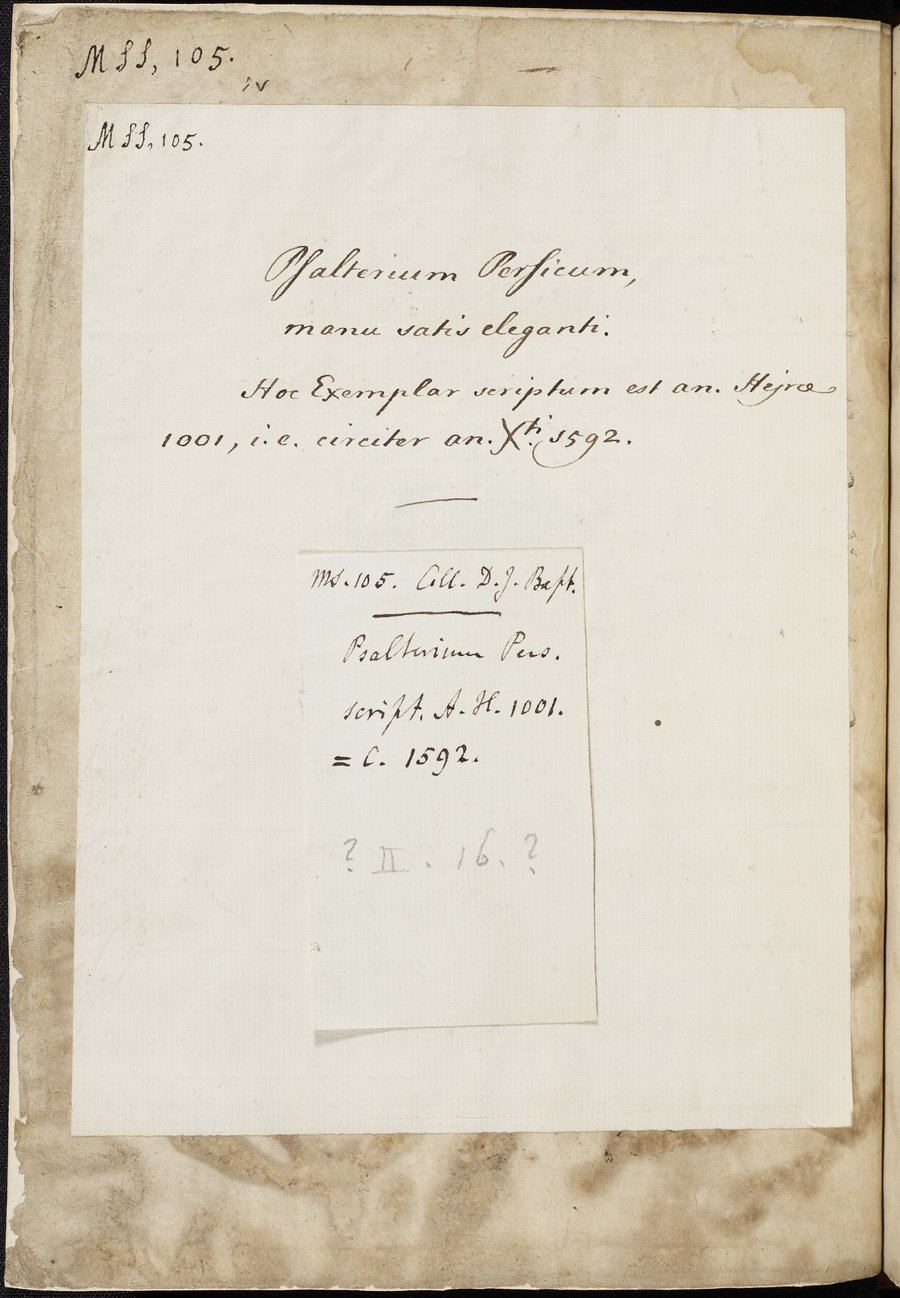 MSS, 105.
iv
MSS, 105.
Psalterium Persicum,
manu satis eleganti.
Hoc Exemplar scriptum est an. Hejræ
1001, i.e. circiter an. Xti. 1592.
MS. 105. Coll. D. J. Bapt.
Psalterium Pers.
script. A. H. 1001.
= C. 1592.
? II. 16. ?